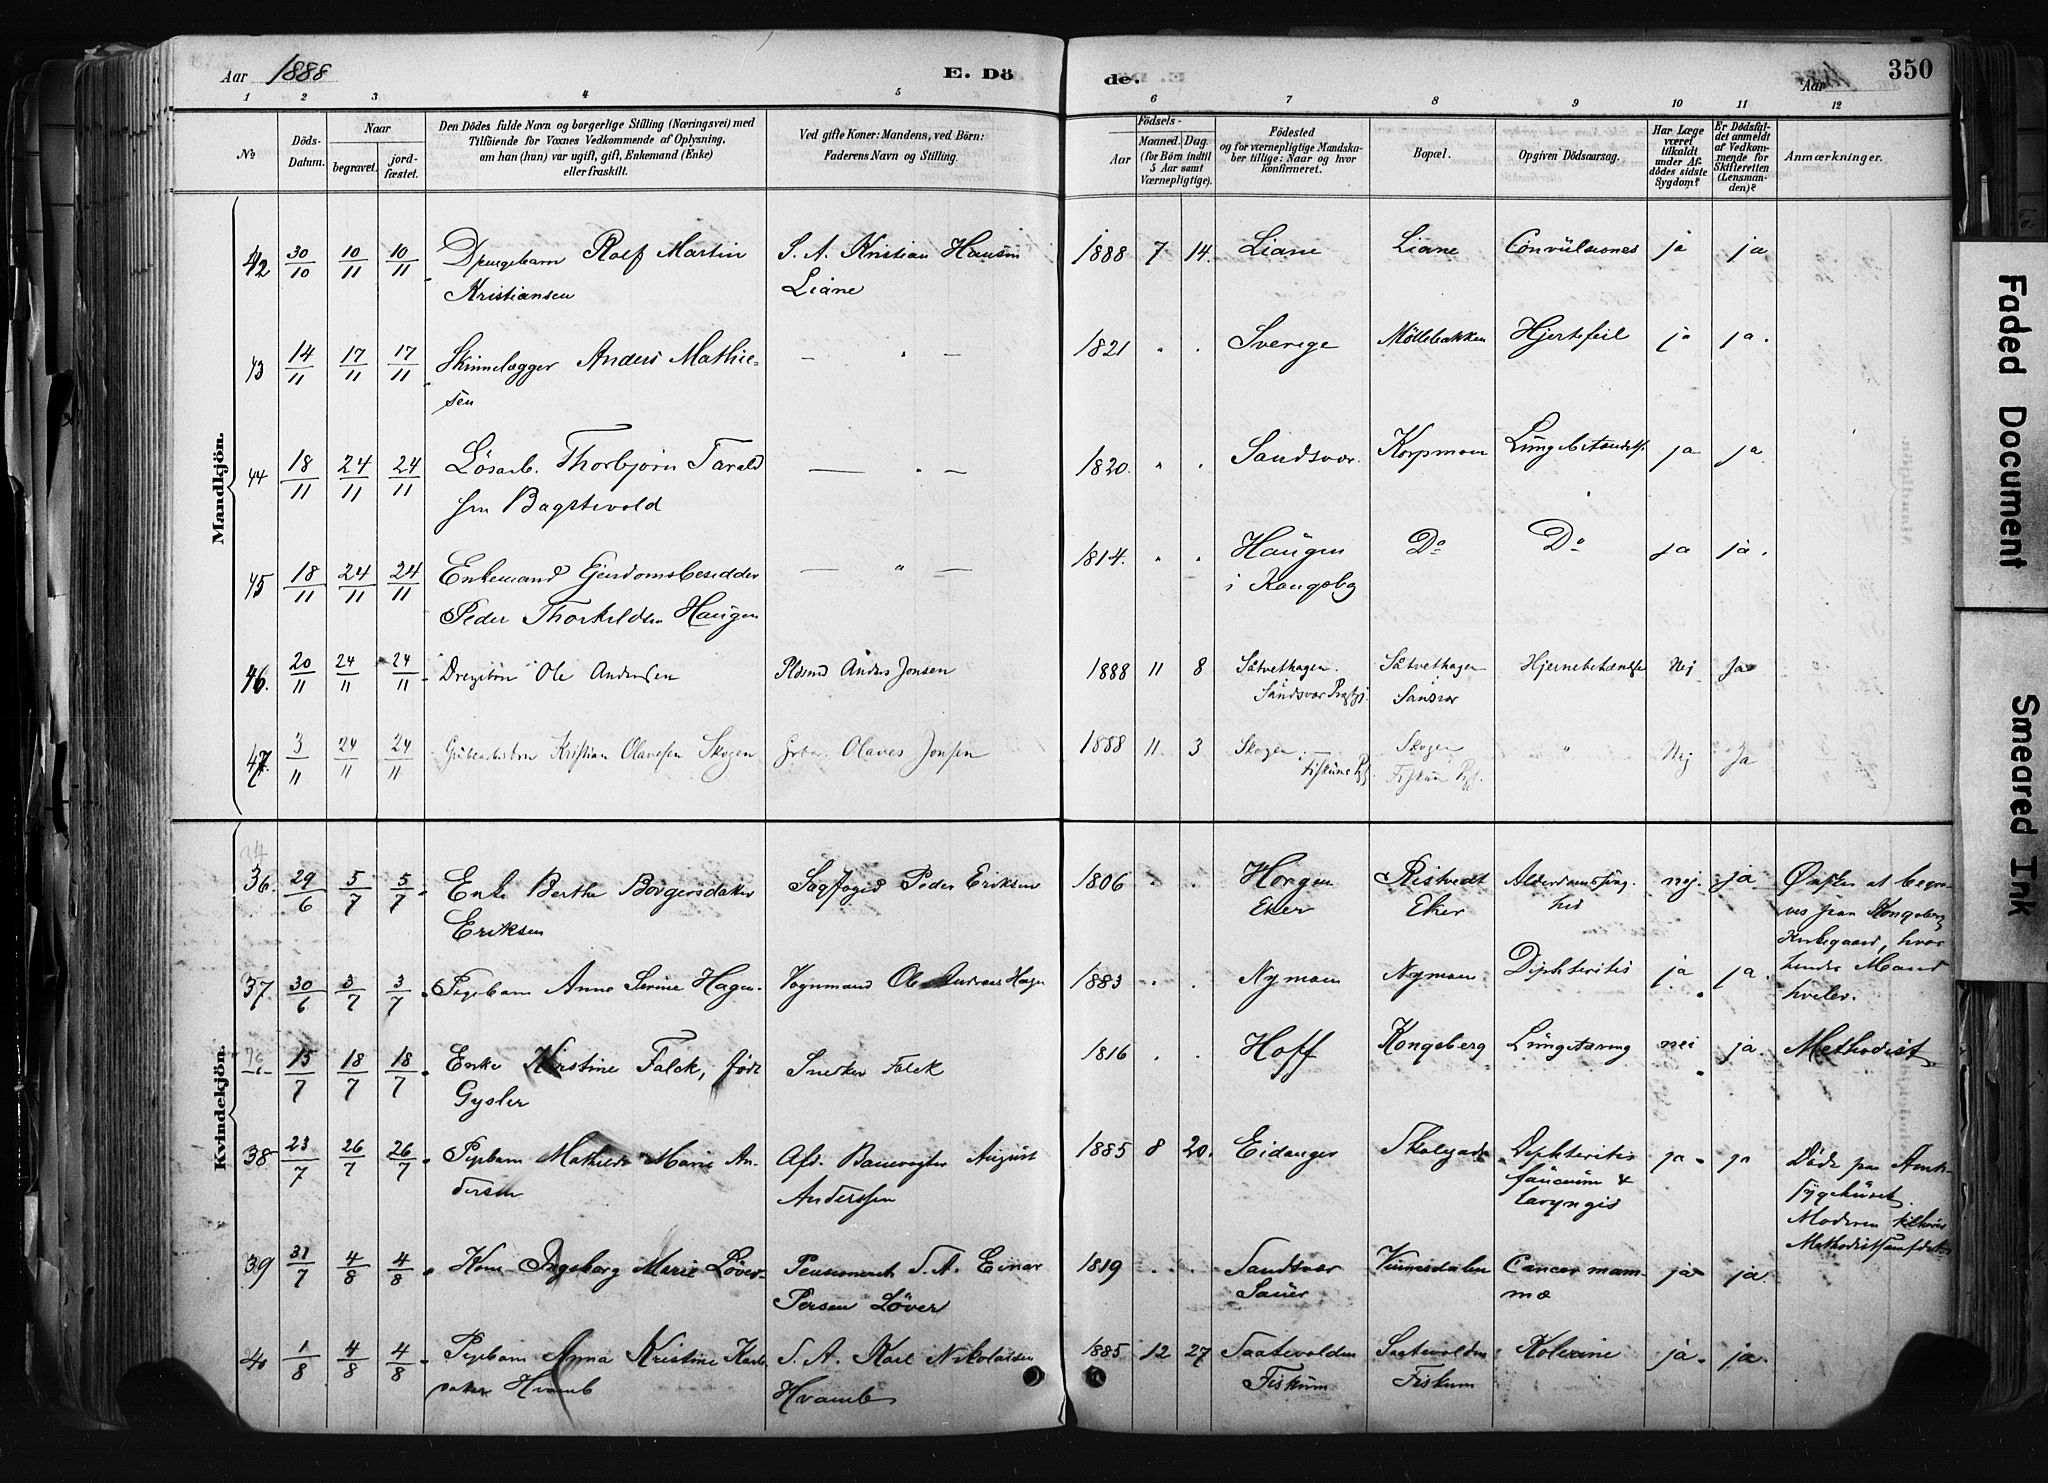 Aar 1888
E. Döde.
Aar
350
1 2 3 4 5 6 7 8 9 10 11 12
No
Döds-Datum.
Naar
begravet.
jordfæstet.
Den Dödes fulde Navn og borgerlige Stilling (Næringsvei) med
Tilföiende for Voxnes Vedkommende af Oplysning,
om han (hun) var ugift, gift, Enkemand (Enke)
eller fraskilt.
Ved gifte Koner: Mandens, ved Börn:
Faderens Navn og Stilling.
Födsels-
Aar
Maaned. Dag
(for Börn indtil
5 Aar samt
Værnepligtige).
Födested
og for værnepligtige Mandskaber
tillige: Naar og hvor
konfirmeret.
Bopæl.
Opgiven Dödsaarsag.
Har Læge
været
tilkaldt
under Afdödes
sidste
Sygdom?
Er Dödsfaldet
anmeldt
af Vedkommende
for
Skifteretten
(Lensmanden)?
Anmærkninger.
Mandkjön.
42 30/10 10/11 10/11 Rolf Martin S. A. Kristian Hansen 1888 7 14. Liane Liane Convulsiones ja ja
Kristiansen Liane
43 14/11 17/11 17/11 Anders Mathiesen — " — 1821 " . Sverige Möllebakken Hjertefeil ja ja.
44 18/11 24/11 24/11 Lösarb. Thorbjörn Tarald 1820. " . Sandsvær. Korpmoen ja ja
sen Bagstevold
45 18/11 24/11 24/11 Enkemand Gjordomsbesidder — " — 1814. " . Haugen Do Do ja ja.
Peder Thorkildsen Haugen i Kongsbg
46. 20/11 24/11 24/11 Ole Andersen Anders Jonsen 1888 11 8 Såtvethagen. Såtvethagen Nej Ja
Sandsvær Sansvær
47. 3/11 24/11 24/11 Kristian Olavesen Skogen Olaves Jonsen 1888 11. 3 Skogen Skogen " Nej Ja
Fiskum Fiskum
Kvindekjön.
36. 29/6 5/7 5/7 Enke Berthe Borgersdater Sagfoged Peder Eriksen 1806 . . Horgen Ristvedt nej. ja. Önskes at begra-
Eriksen Eker Eker ves paa Kongsberg
Kirkegaard, hvor
hendes Mand
hviler.
37. 30/6 3/7 3/7 Pigebarn Anne Serine Hagen. Vognmand Ole Andreas Hagen 1883 . . Nymoen Nymoen Diphteritis ja. ja.
15/7 18/7 18/7 Enke Kirstine Falck, född Snedker Falck 1816 . . Hoff Kongsberg Lungetæring nei ja. Methodist
Gysler
38 23/7 26/7 26/7 Pigebarn Mathilde Marie An- Afd. Banevogter August 1885 8 20. Eidanger Diphteritis ja. ja Döde paa Amts-
dersen Anderssen faucium & sygehuset.
laryngis Moderen tilhörer
39 31/7 4/8 4/8 Kone Ingeborg Marie Löver. Pensioneret S. A. Einar 1819 . . Sandsvær Vinnesdalen Cancer mam- ja. ja.
Persen Löver mæ
40 1/8 4/8 4/8 Pigebarn Anna Kristine Karls S. A. Karl Nikolaisen 1885 12 27 Saatevolden Saatevolden Kolerine ja. ja.
dater Hvamb Hvamb Fiskum Fiskum
Faded Document
Smeared Ink